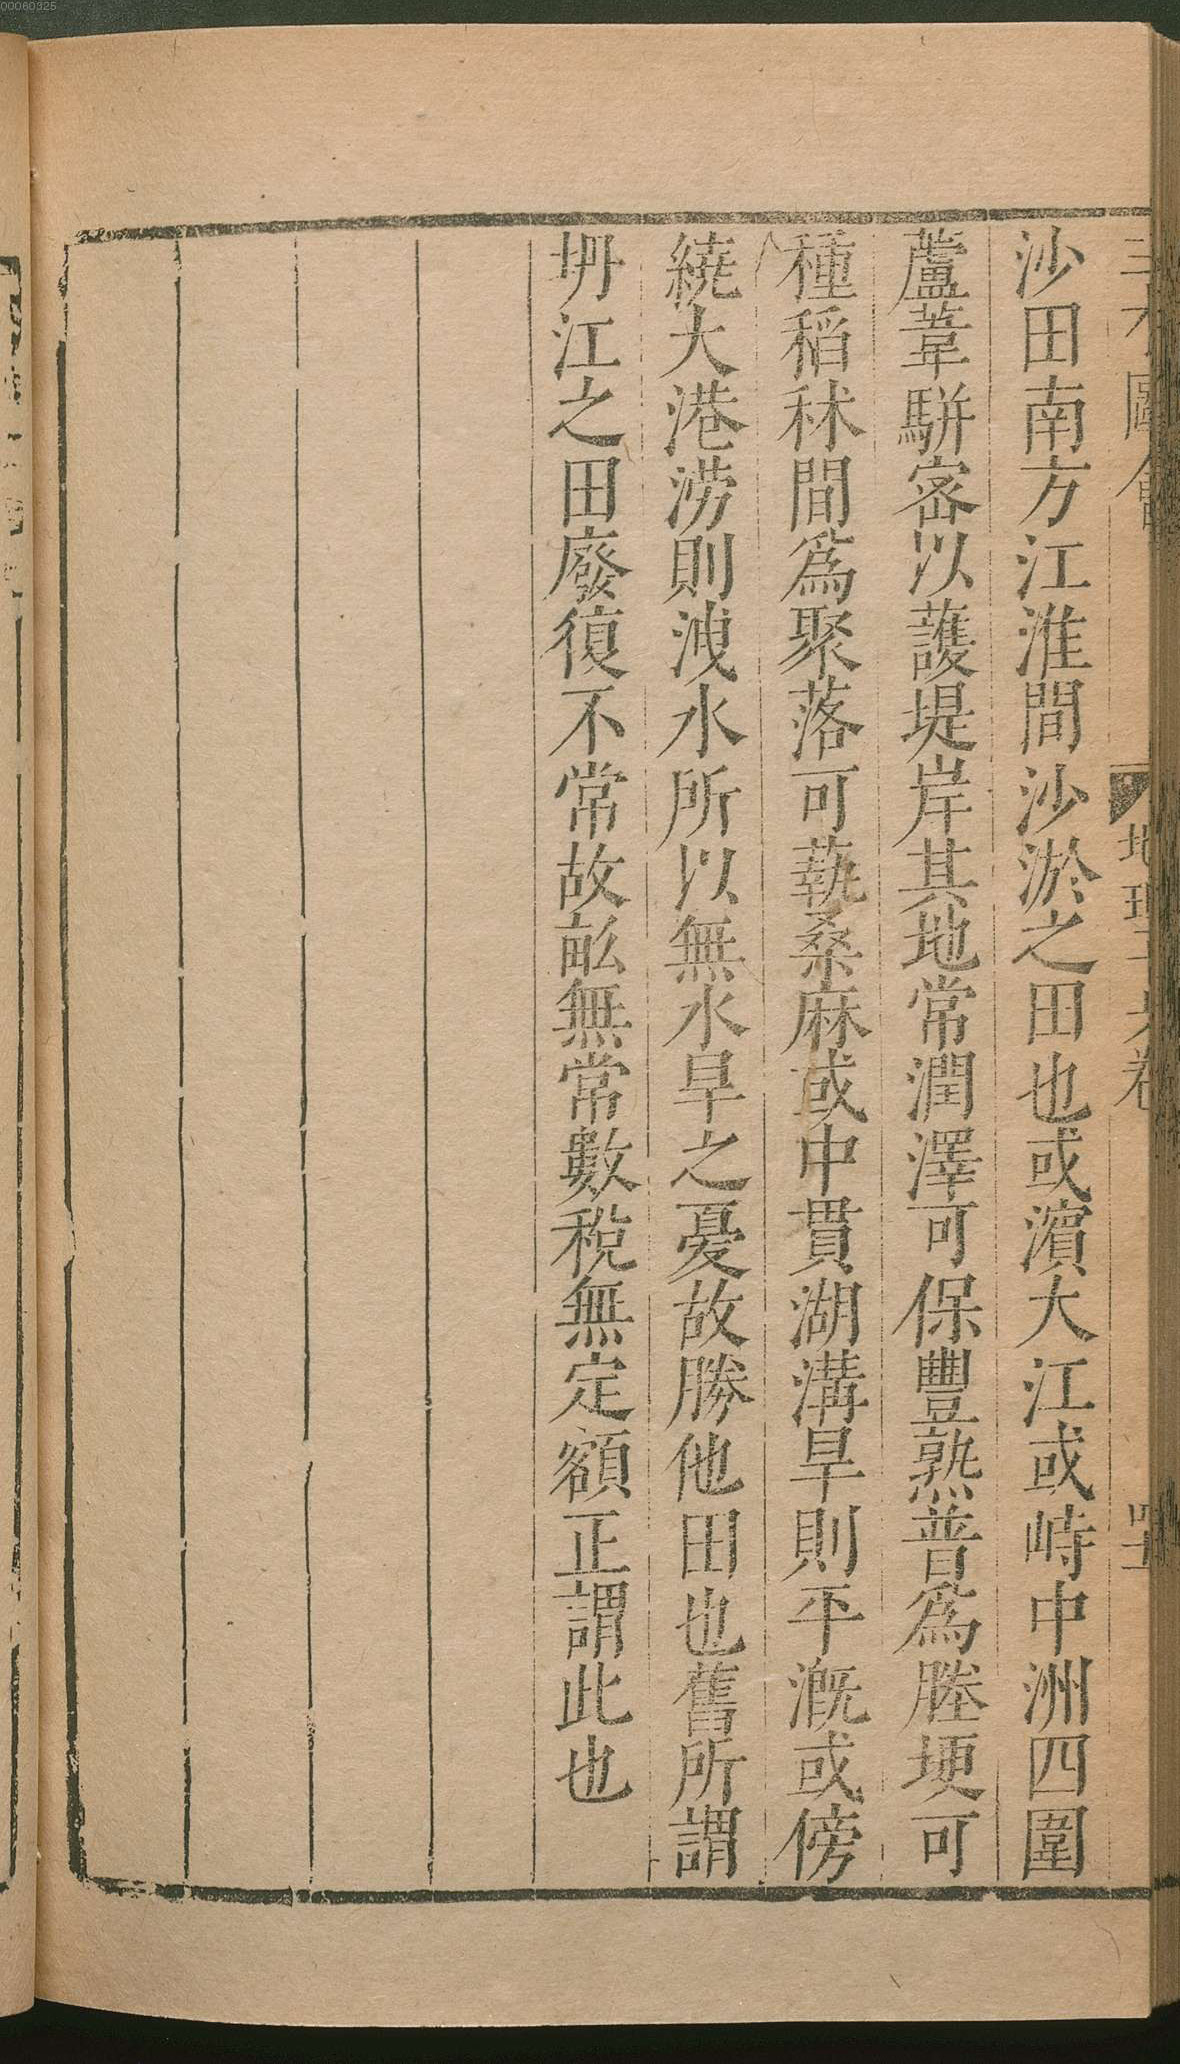 00060325
三才圖會 地理十六卷
沙田南方江淮間沙淤之田也或濱大江或峙中洲四圍
蘆葦駢密以護堤岸其地常潤澤可保豐熟普爲塍埂可
種稻秫間爲聚落可蓺桑麻或中貫湖溝旱則平溉或傍
繞大港澇則洩水所以無水旱之憂故勝他田也舊所謂
坍江之田廢復不常故畆無常數稅無定額正謂此也